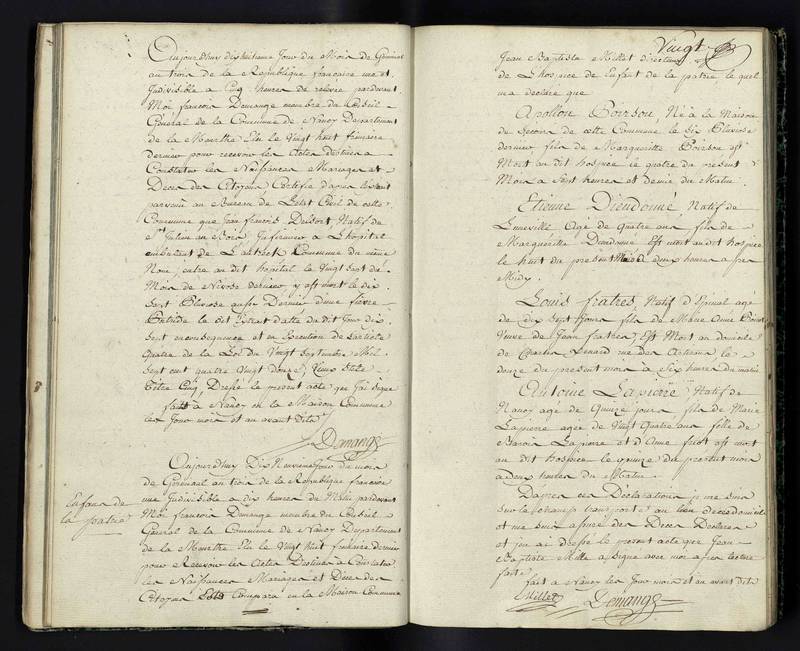 Aujourdhuy dixhuitieme Jour du Mois de Germinal
an trois de la République française une et
Indivisible a Cinq heures de relevée pardevant
Moi françois Demange membre du Conseil
Général de la Commune de Nancy Departement
de la Meurthe Elu le Vingt huit frimaire
dernier pour recevoir les Actes destinés a
Constater les Naissances Mariages et
Décès des Citoyens Certifie d'apres
parvenu au Bureau de Letat Civil de cette
Commune que Jean françois Natif de
St Julien au Bois Infirmier a L'hopital
de Commune du même
Nom, entre au dit hopital le Vingt sept du
Mois de Nivose dernier y est mort le dix
Sept Pluviose aussi Dernier d'une fievre
Putride le dit Extrait datté du dit Jour dix
Sept en consequence et en Execution de Larticle
Quatre de la Loi du Vingt Septembre Mil
Sept cent quatre Vingt douze, Vieux Stile
Titre Cinq, Dressé le present acte que J'ai Signé
fait a Nancy en la Maison Commune
les Jour mois et an avant dits
Demange
Enfans de
la patrie
Aujourdhuy Dix Neuvieme Jour du mois
de Germinal an trois de la République française
une Indivisible a dix heures du Matin pardevant
Moi françois Demange membre du Conseil
Géneral de la Commune de Nancy Departement
de la Meurthe Elu le Vingt huit frimaire dernier
pour Recevoir les Actes Destinés a Constater
les Naissances Mariages et Décès des
Citoyens Comparu en la Maison Commune
Vingt
Jean Baptiste Millet directeur
de L'hospice des Enfant de la patrie le quel
m'a declare que
Apollon Poirson Né à la Maison
de Secours de cette Commune le Six Pluviose
dernier fils de Margueritte Poirson est
Mort au dit hospice le quatre du present
Mois a Sept heures et demie du Matin.
Etienne Dieudonné, Natif de
Luneville Agé de Quatre ans fils de
Margueritte Dieudonné Est mort au dit hospice
le huit du present Mois a deux heures apres
Midy.
Louis fratres, Natif d'Epinal agé
de dix Sept Jours fils de Marie Anne
Veuve de Jean fratres, Est Mort au domicile
de Charles Lenard rue des Artisans le
douze du present mois a Six heures du matin
Antoine Lapierre Natif de
Nancy agé de Quinze jours, fils de Marie
Lapierre agée de Vingt Quatre ans fille de
Lapierre et d'Anne est mort
au dit hospice le quinze du present mois
a deux heures du Matin.
D'apres ces Déclarations je me suis
Sur le champ transporté au lieu de ce domicile
et me suis assuré des Décès Déclarés
et j'en ai dressé le present acte que Jean
Baptiste Millet a Signé avec moi apres lecture
faite
fait a Nancy les Jour mois et an avant dits
Millet Demange